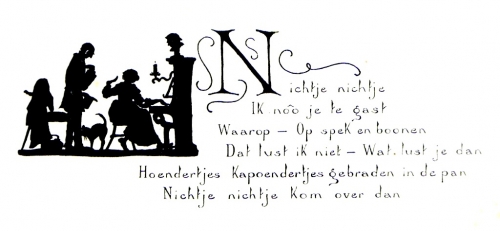 Nichtje nichtje
IK nôô je te gast
Waarop – Op spek en boonen
Dat lust ik niet – Wat. lust je dan
Hoendertjes Kapoendertjes gebraden in de pan
Nichtje nichtje Kom over dan